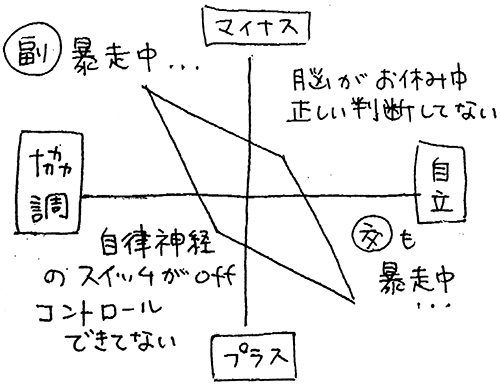 マイナス
副 暴走中...
脳がお休み中
正しい判断してない
協調
自立
自律神経
のスイッチがoff
コントロール
できてない
交も
暴走中
...
プラス